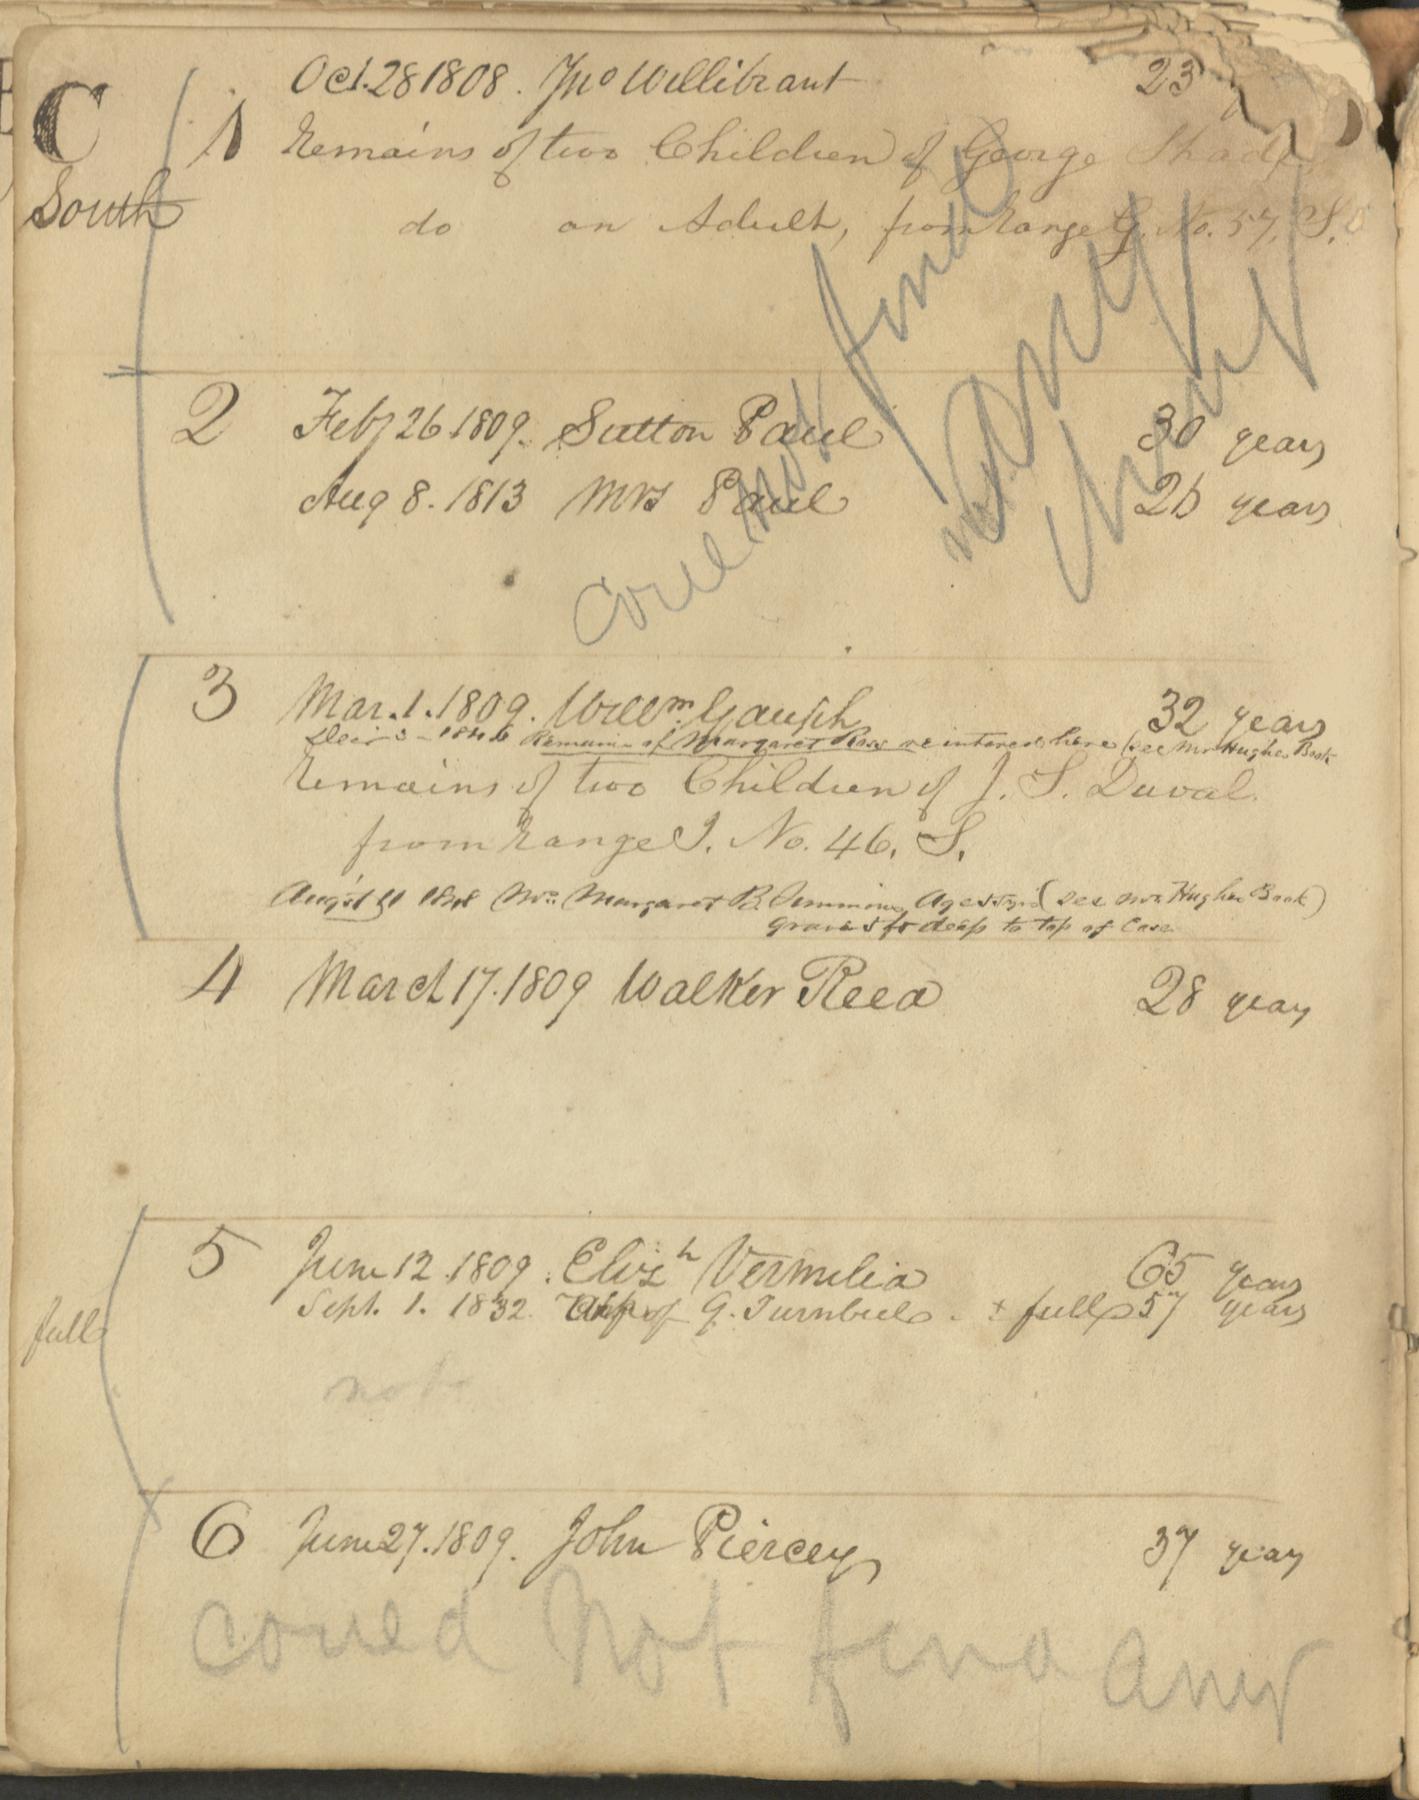 C
South
1 Oct. 28 1808. Jno Willibrant 23
Remains of two Children of George Shade
do an Adult, from range G. No. 57. S.
could not find
any
2 Feby 26 1809. Sutton Paul 30 years
Aug 8. 1813 Mrs Paul 26 years
3 Mar. 1. 1809. Willm. Gaugh 32 years
1846 Remains of Margaret Ross reinterred here (see Mr Hughes Book
Remains of two Children of J. S. Duval
from range I. No. 46. S.
Mrs. Margaret B. Aged (see Mr Hughes Book)
Grave 5 ft deep to top of Case
4 March 17. 1809 Walker Reed 28 years
5 June 12. 1809. Elizh Vermilia 65 years
full
Sept. 1. 1832. of G. Turnbull. + full 57 years
not
6 June 27. 1809. John Piercey 37 years
could not find any